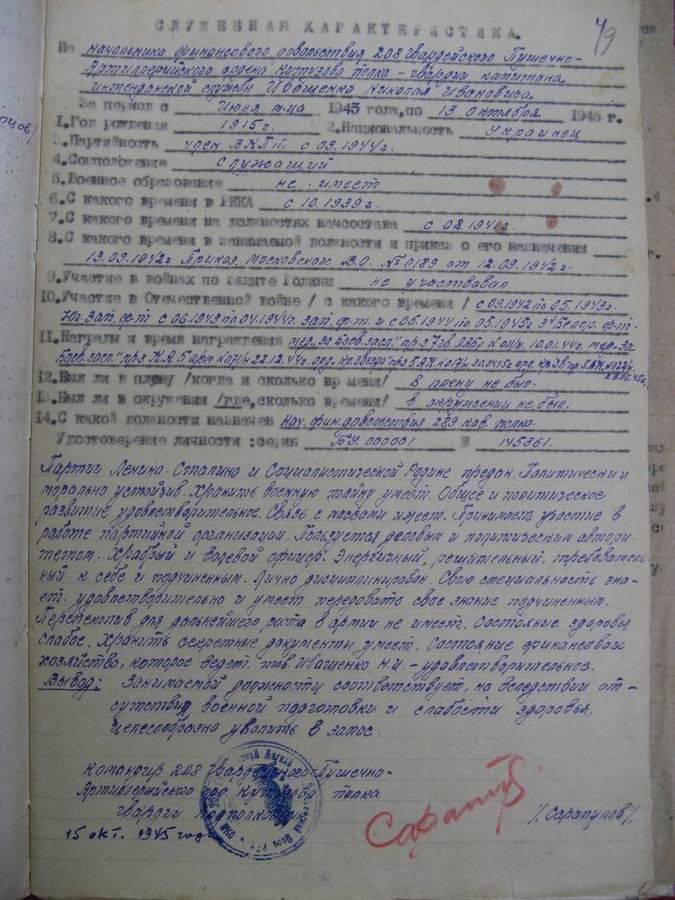 49
СЛУЖЕБНАЯ ХАРАКТЕРИСТИКА.
На начальника финансового довольствия 208 Гвардейского Пушечно-
Артиллерийского ордена Кутузова полка - гвардии капитана
интендантской службы Иващенко Николая Ивановича
За период с Июня м-ца 1943 года, по 13 октября 1945 г.
1. Год рождения 1915 г. 2. Национальность Украинец
3. Партийность член ВКП/б/ с 03.1944 г.
4. Соцположение служащий
5. Военное образование не имеет
6. С какого времени в РККА с 10.1939 г.
7. С какого времени на должностях начсостава с 08.1941 г.
8. С какого времени в занимаемой должности и приказ о его назначении
13.09.1942 г. Приказ Московского В.О. № 0189 от 12.09.1942 г.
9. Участие в войнах по защите Родины не участвовал
10. Участие в Отечественной войне / с какого времени / с 09.1942 по 05.1943 г.
Юг. Зап. ф-т с 06.1943 по 04.1944 г. Зап. ф-т и с 05.1944 по 05.1945 г. 3 Белор. ф-т.
11. Награды и время награждения мед. "За боев. засл."
12. Был ли в плену /когда и сколько времени/ в плену не был.
Был ли в окружении /где, сколько времени/ в окружении не был.
14. С какой должности назначен Нач. фин. довольствия 289 кав. полка.
Удостоверение личности: серия 000001 № 145361.
Партии Ленина-Сталина и Социалистической Родине предан. Политически и
морально устойчив. Хранить военную тайну умеет. Общее и политическое
развитие удовлетворительное. Связь с массами имеет. Принимает участие в
работе партийной организации. Пользуется деловым и политическим автори-
тетом. Храбрый и волевой офицер. Энергичный, решительный, требователь-
ный к себе и подчиненным. Лично дисциплинирован. Свою специальность зна-
ет удовлетворительно и умеет передовать свое знание подчиненным.
Перспектив для дальнейшего роста в армии не имеет. Состояние здоровья
слабое. Хранить секретные документы умеет. Состояние финансового
хозяйство, которое ведет тов. Иващенко Н.И. - удовлетворительное.
Вывод: Занимаемой должности соответствует, но вследствии от-
сутствия военной подготовки и слабости здоровья,
целесообразно уволить в запас.
Командир 208 Гвардейского Пушечно-
Артиллерийского орд. Кутузова полка
Гвардии Подполковник
/Сарапулов/.
15 окт. 1945 года